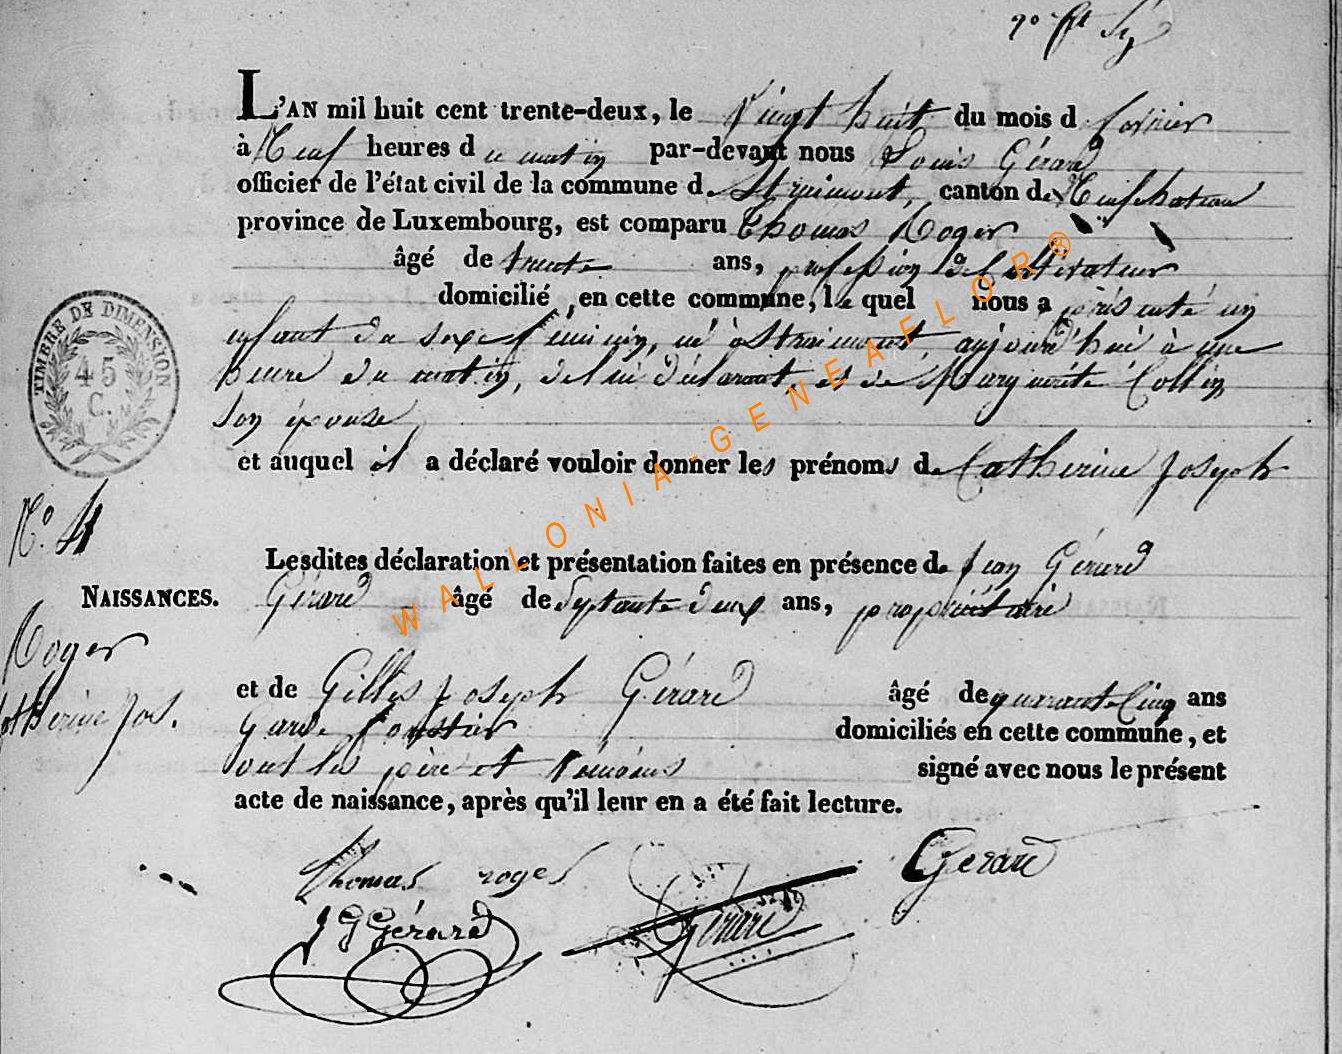 L'AN mil huit cent trente-deux, le Vingt huit du mois d fevrier
à Neuf heures du matin par-devant nous Louis Gérard
officier de l'état civil de la commune de Straimont, canton de Neufchateau
province de Luxembourg, est comparu Thomas Roger
âgé de trente ans, profession de Cultivateur
domicilié, en cette commune, le quel nous a présenté un
enfant du sexe féminin, né à Straimont, aujourd'hui à une
heure du matin, de lui déclarant, et de Marguerite Collin
son épouse
et auquel il a déclaré vouloir donner les prénoms de Catherine Joseph
TIMBRE DE DIMENSION
45
C.
N.º 4
Lesdites déclaration et présentation faites en présence de Jean Gérard
NAISSANCES. Gérard âgé de Septante deux ans, propriétaire
Roger
et de Gilles Joseph Gérard âgé de quarante Cinq ans
Catherine Jos. Garde forestier domiciliés en cette commune, et
ont les père et témoins signé avec nous le présent
acte de naissance, après qu'il leur en a été fait lecture.
Thomas roger Gérard
J G Gérard Gérard
WALLONIA-GENEAFLOR®